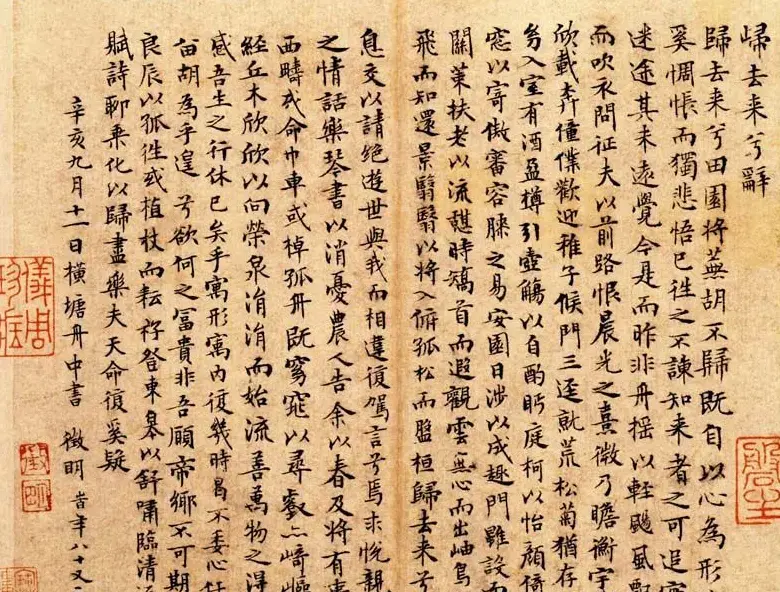 歸去来兮辭
歸去来兮田園將蕪胡不歸既自以心為形
奚惆悵而獨悲悟已往之不諫知来者之可追寔
迷途其未遠覺今是而昨非舟摇以輕颺風飄
而吹衣問征夫以前路恨晨光之熹微乃瞻衡宇
欣載奔僮僕歡迎稚子候門三逕就荒松菊猶存
幼入室有酒盈樽引壺觴以自酌眄庭柯以怡顏倚
窓以寄傲審容膝之易安園日涉以成趣門雖設而
關策扶老以流憇時矯首而遐觀雲無心而出岫鳥
飛而知還景翳翳以將入俯孤松而盤桓歸去来兮
息交以請絕遊世與我而相違復駕言兮焉求悅親
之情話樂琴書以消憂農人告余以春及將有事
西疇或命巾車或棹孤舟既窈窕以尋壑亦崎嶇
經丘木欣欣以向榮泉涓涓而始流善萬物之得
感吾生之行休已矣乎寓形寓內復幾時曷不委心任
留胡為乎遑兮欲何之冨貴非吾願帝鄉不可期
良辰以孤往或植杖而耘籽登東皋以舒嘯臨清流
賦詩聊乘化以歸盡樂夫天命復奚疑
辛亥九月十一日橫塘舟中書 徵明 峕年八十又
徵明
儀周珍藏